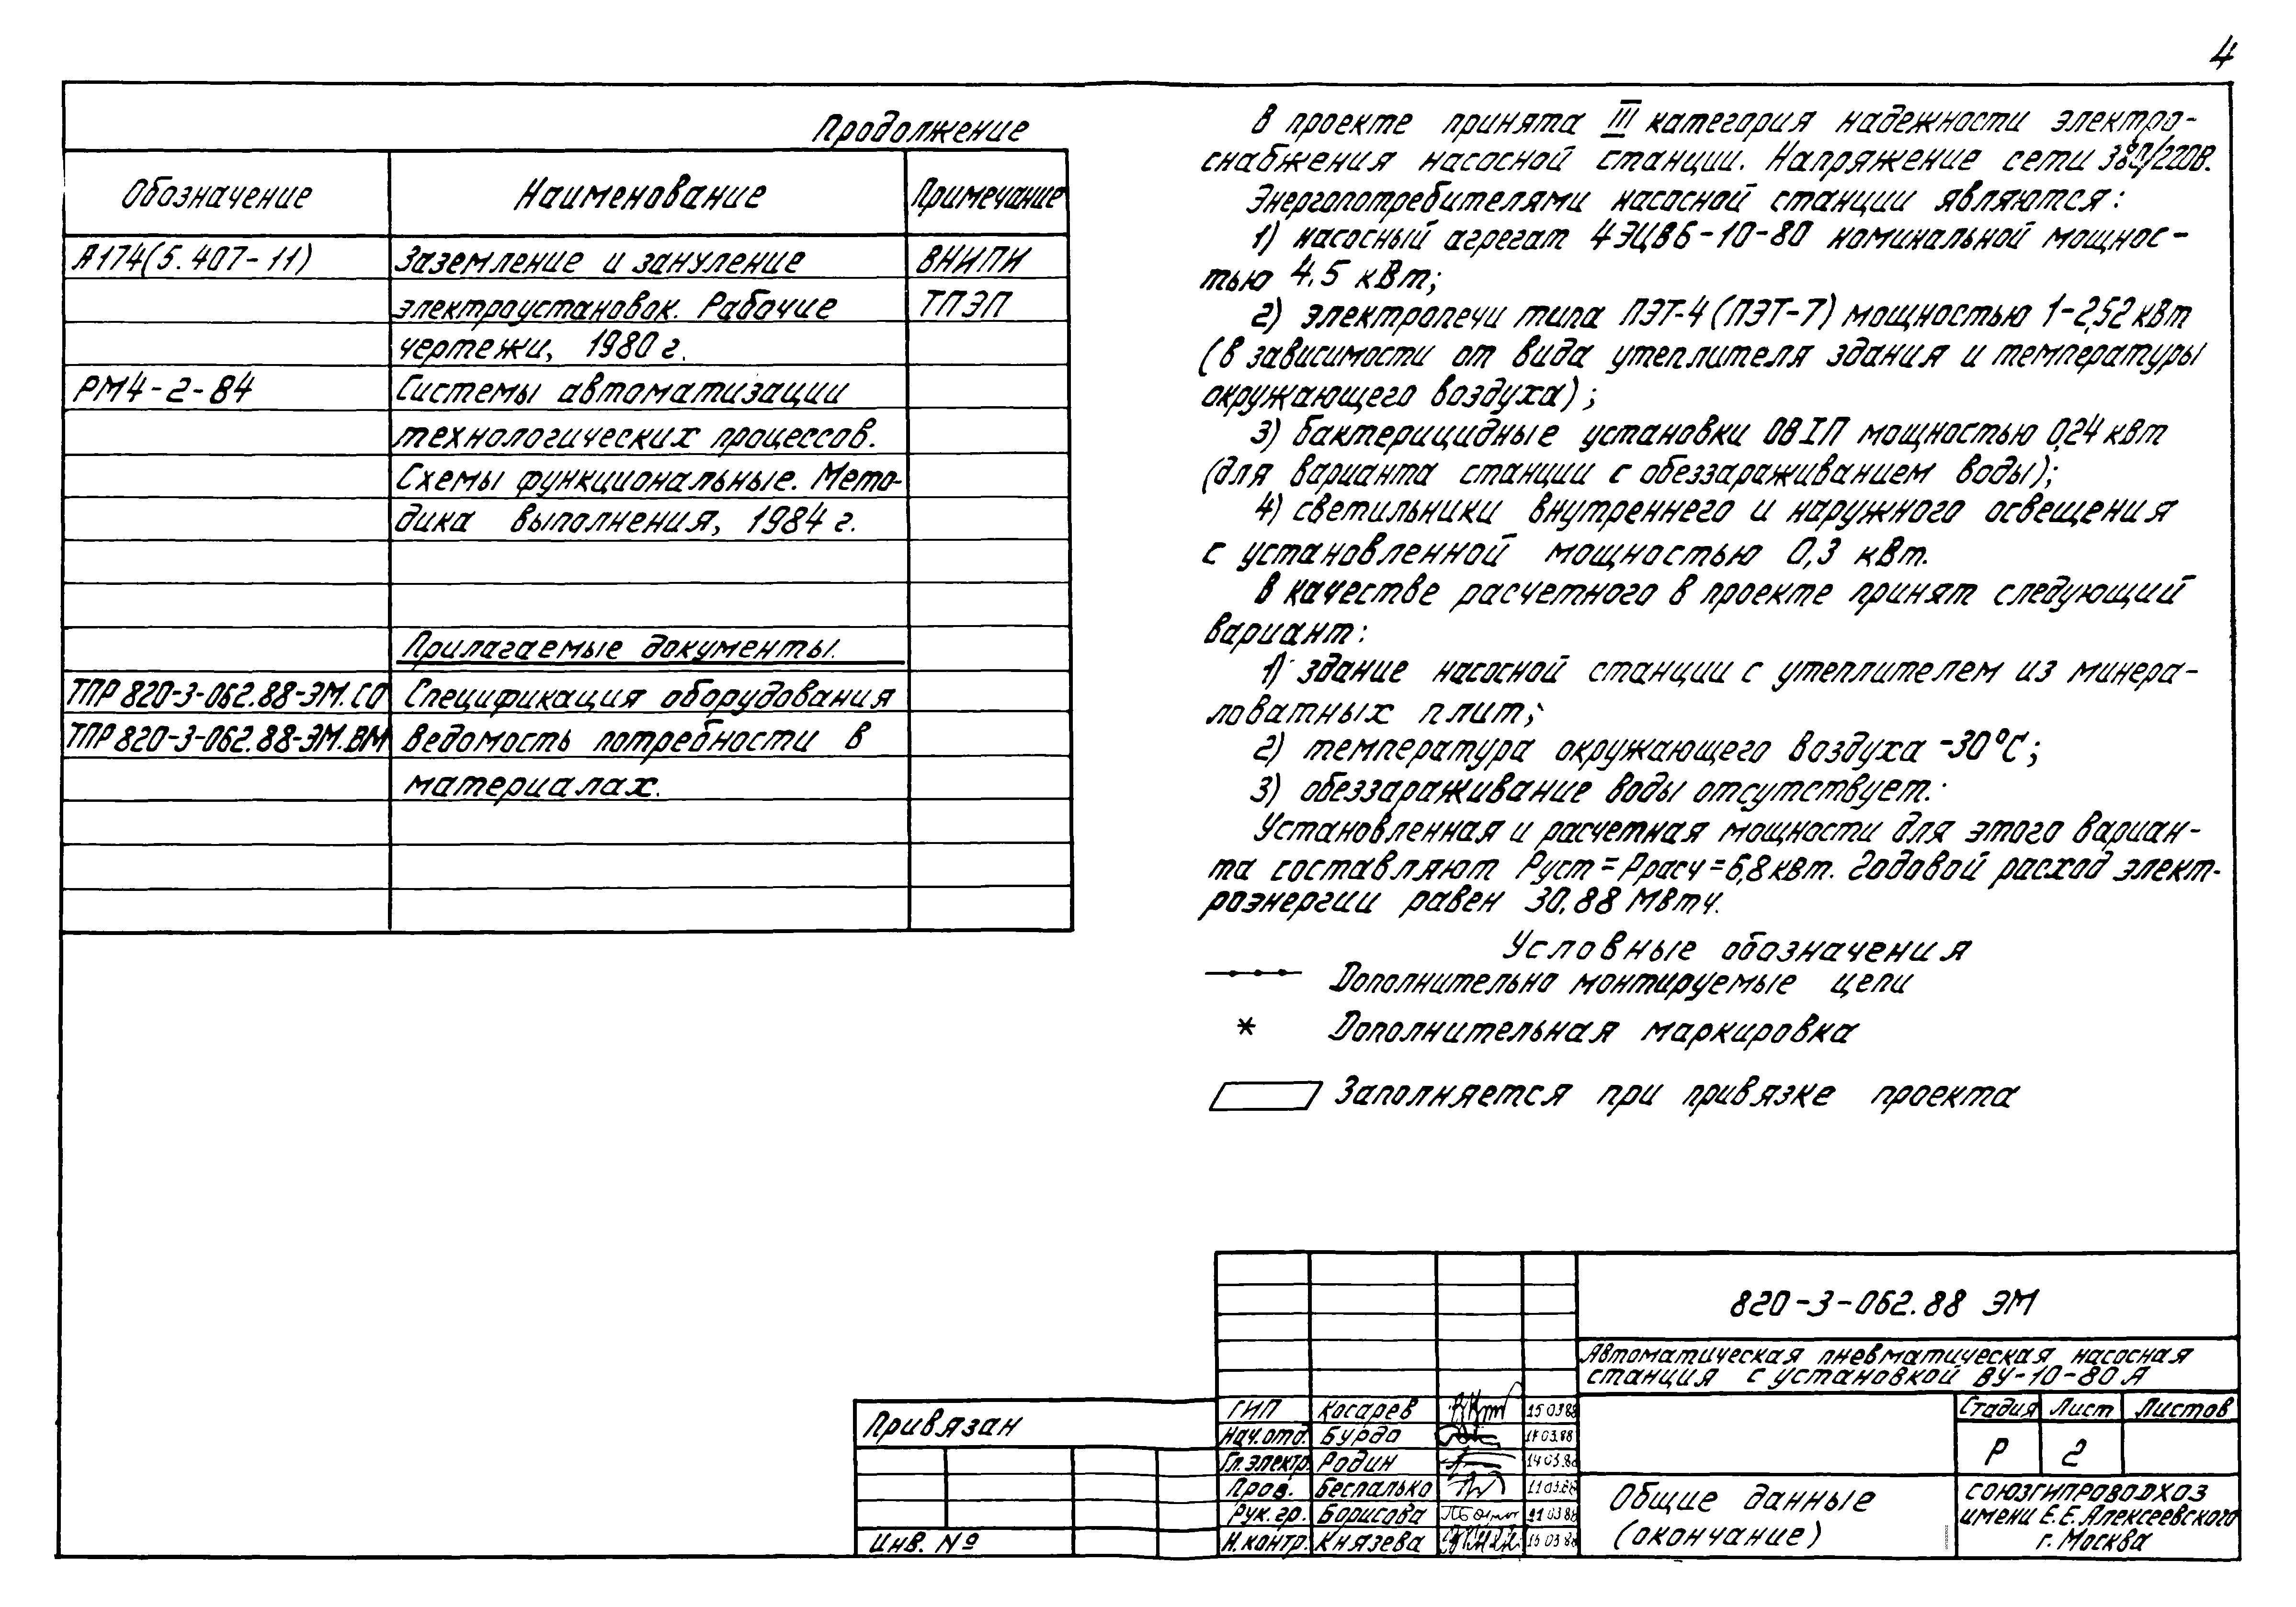 4
Продолжение
Обозначение Наименование Примечание
А174(5.407-11) Заземление и зануление ВНИПИ
электроустановок. Рабочие ТПЭП
чертежи, 1980 г.
РМ4-2-84 Системы автоматизации
технологических процессов.
Схемы функциональные. Мето-
дика выполнения, 1984 г.
Прилагаемые документы.
ТПР 820-3-062.88-ЭМ.СО Спецификация оборудования
ТПР 820-3-062.88-ЭМ.ВМ Ведомость потребности в
материалах.
В проекте принята III категория надежности электро-
снабжения насосной станции. Напряжение сети 380/220В.
Энергопотребителями насосной станции являются:
1) насосный агрегат 4ЭЦВ6-10-80 номинальной мощнос-
тью 4.5 кВт;
2) электропечи типа ПЭТ-4 (ПЭТ-7) мощностью 1-2,52 кВт
(в зависимости от вида утеплителя здания и температуры
окружающего воздуха);
3) бактерицидные установки ОВ1П мощностью 0,24 кВт
(для варианта станции с обеззараживанием воды);
4) светильники внутреннего и наружного освещения
с установленной мощностью 0,3 кВт.
В качестве расчетного в проекте принят следующий
вариант:
1) здание насосной станции с утеплителем из минера-
ловатных плит;
2) температура окружающего воздуха -30°С;
3) обеззараживание воды отсутствует.
Установленная и расчетная мощности для этого вариан-
та составляют Руст = Ррасч = 6,8 кВт. Годовой расход элект-
роэнергии равен 30.88 МВтч.
Условные обозначения
Дополнительно монтируемые цепи
* Дополнительная маркировка
Заполняется при привязке проекта
820-3-062.88 ЭМ
Автоматическая пневматическая насосная
станция с установкой ВУ-10-80А
Привязан
Инв. №
ГИП Косарев 15 03 88
Нач.отд. Бурдо 03.88
Гл.электр. Родин 14 03.88
Пров. Беспалько 11 03.88
Рук.гр. Борисова 11 03 88
Н.контр. Князева 15 03 88
Стадия Лист Листов
Р 2
Общие данные
(окончание)
СОЮЗГИПРОВОДХОЗ
имени Е.Е.Алексеевского
г. Москва